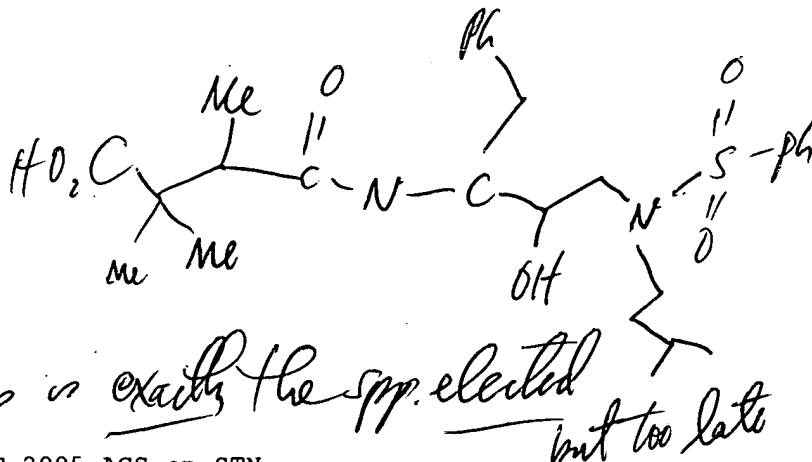 Ph
O
O
Me
HO2C
C
N
C
S
Ph
N
O
Me
Me
OH
is exactly the spp. elected
but too late
2005 ACS on STN